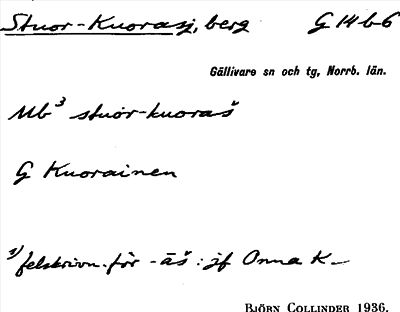 Stuor-Kuorasj, berg G 14 b 6
Gällivare sn och tg, Norrb. län.
Mb³ stuòr-kuoraš̄
G Kuorainen
¹) felskrivn. för -āš : jf Onna K–
BJÖRN COLLINDER 1936.